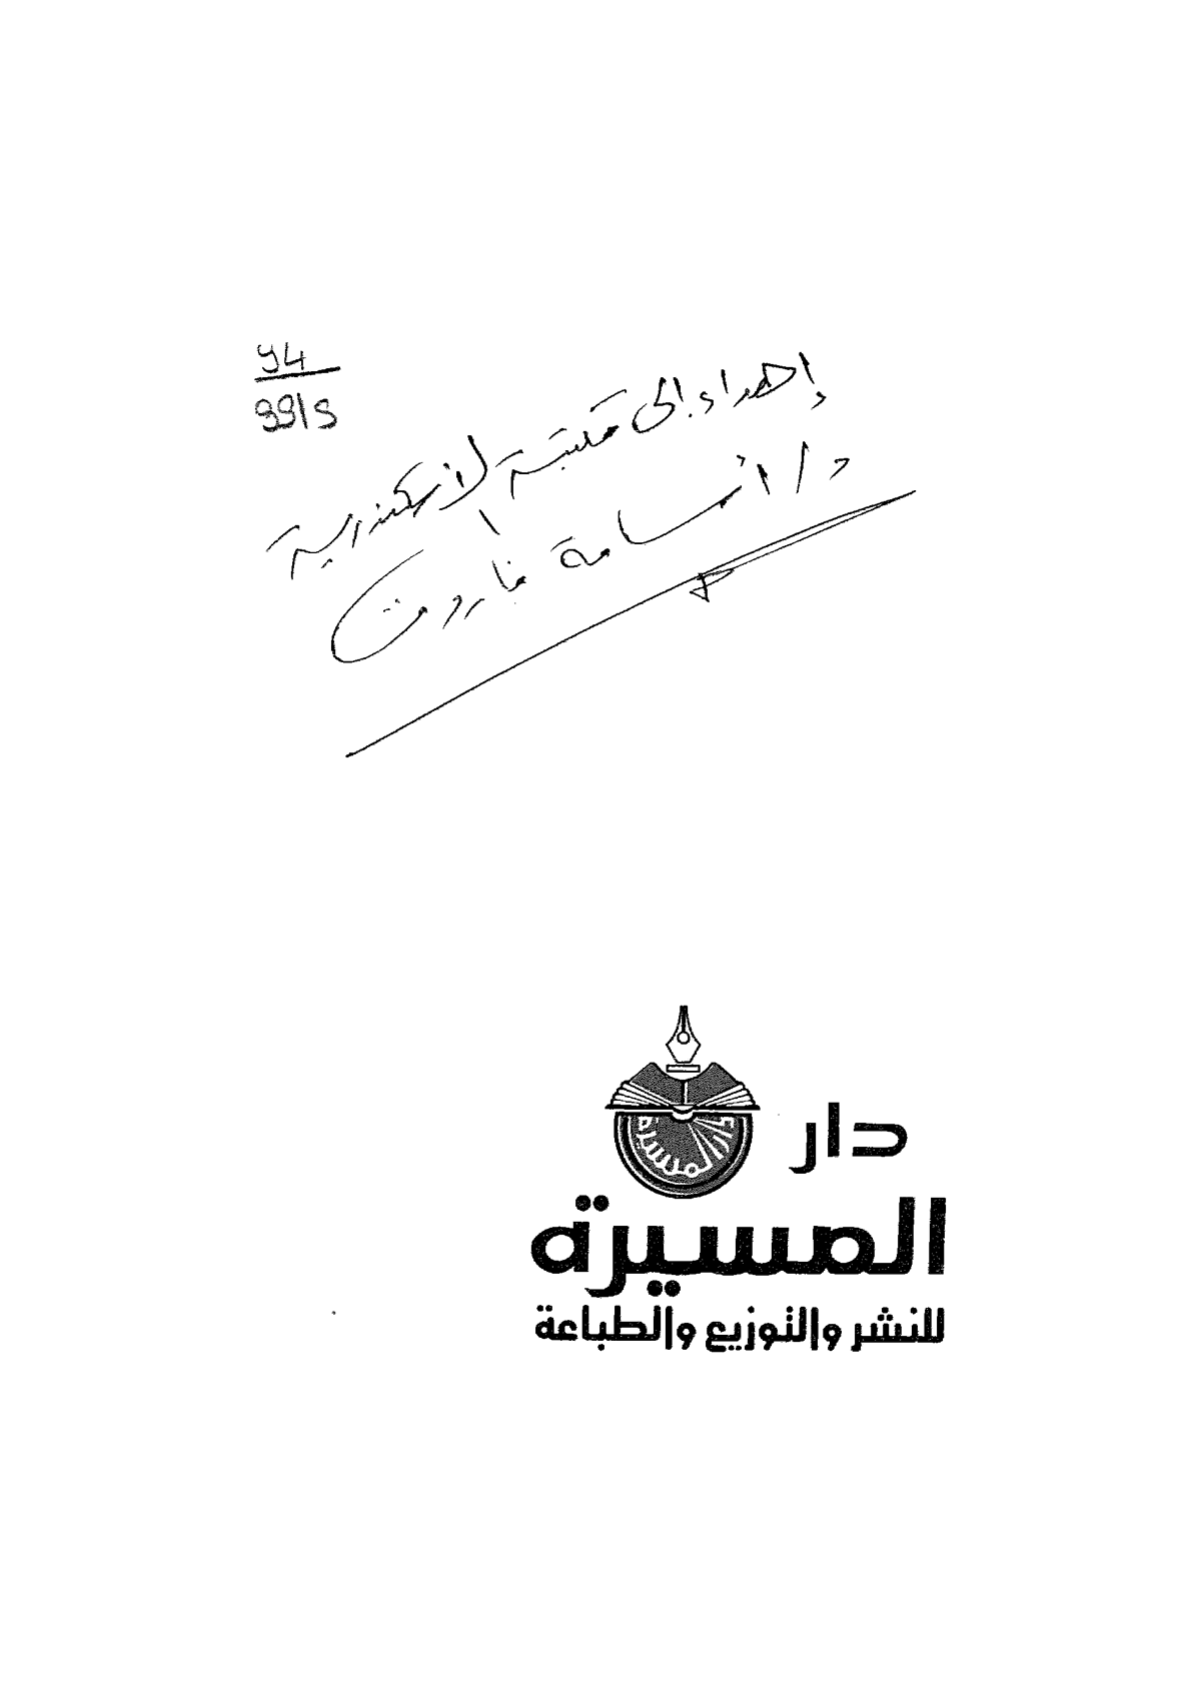 94
99/5
إهداء إلى مكتبة الإسكندرية
د/ أسامة فاروق
دار
المسيرة
دار المسيرة
للنشر والتوزيع والطباعة